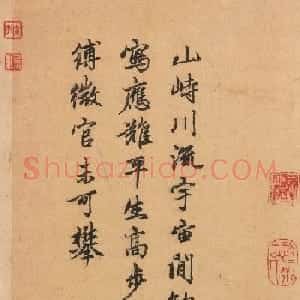 山峙川流宇宙間
寫應難平生高步
縛微官未可攀
Shufaziliao.com